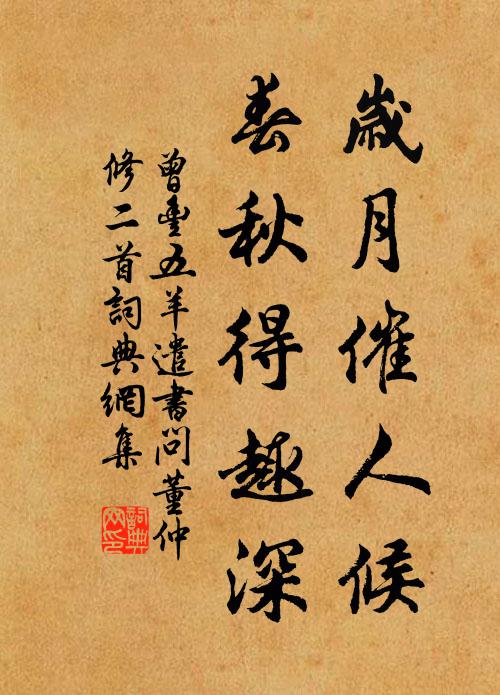 歲月催人候
春秋得趣深
曾豐五羊遣書問董仲
修二首詞典網集